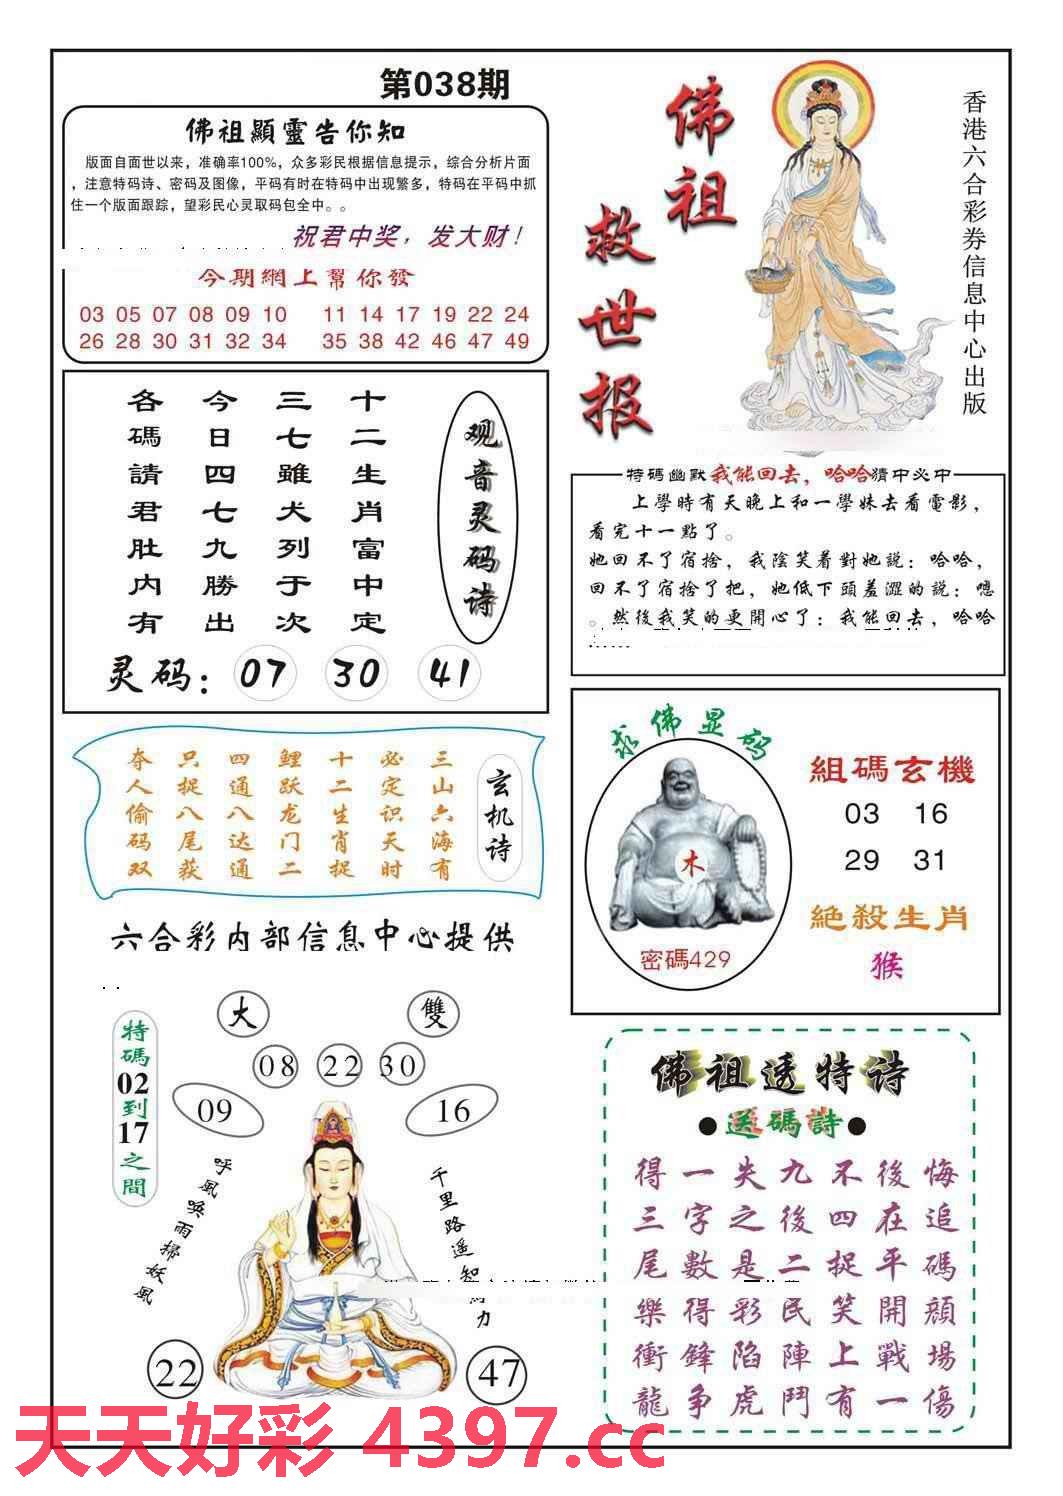 第038期
佛祖顯靈告你知
版面自面世以来，准确率100%，众多彩民根据信息提示，综合分析片面
，注意特码诗、密码及图像，平码有时在特码中出现繁多，特码在平码中抓
住一个版面跟踪，望彩民心灵取码包全中。。
祝君中奖，发大财！
今期網上幫你發
03 05 07 08 09 10 11 14 17 19 22 24
26 28 30 31 32 34 35 38 42 46 47 49
佛祖
救世报
香港六合彩券信息中心出版
观音灵码诗
十二生肖富中定
三七雖犬列于次
今日四七九勝出
各碼請君肚内有
灵码：07 30 41
特碼幽默我能回去，哈哈猜中必中
上學時有天晚上和一學妹去看電影，
看完十一點了。
她回不了宿捨，我陰笑着對她説：哈哈，
回不了宿捨了把，她低下頭羞澀的説：嗯
。然後我笑的更開心了：我能回去，哈哈
玄机诗
三山六海有
必定识天时
十二生肖捉
鲤跃龙门二
四通八达通
只捉八尾获
夺人偷码双
求佛显码
木
密碼429
組碼玄機
03 16
29 31
絕殺生肖
猴
六合彩内部信息中心提供
大 雙
08 22 30
09 16
特碼02到17之間
呼風唤雨掃妖風
千里路遥知
力
22 47
佛祖透特诗
●送碼詩●
得一失九不後悔
三字之後四在追
尾數是二捉平碼
樂得彩民笑開顔
衝鋒陷陣上戰場
龍争虎鬥有一傷
天天好彩 4397.cc